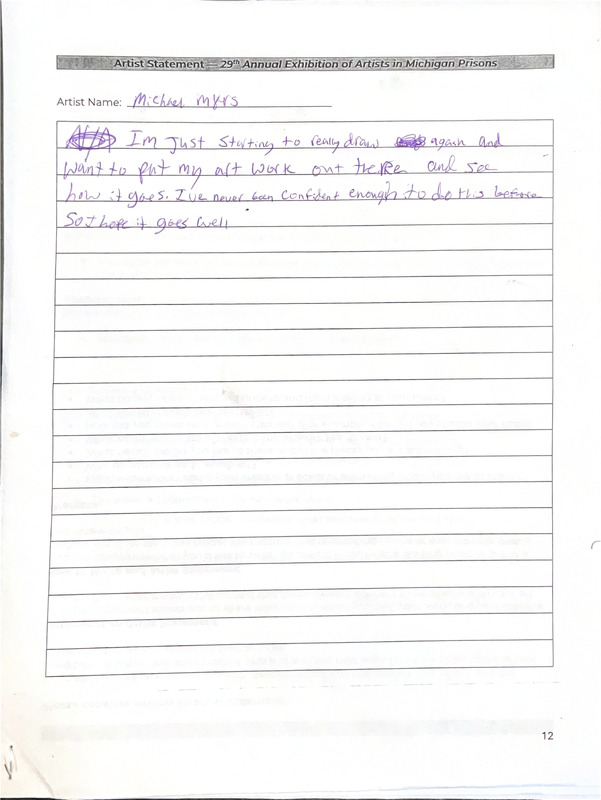 Artist Statement — 29th Annual Exhibition of Artists in Michigan Prisons
Artist Name: Michael Myrs
Im just starting to really draw again and
want to put my art work out there and see
how it goes. I've never been confident enough to do this before
So I hope it goes well
12